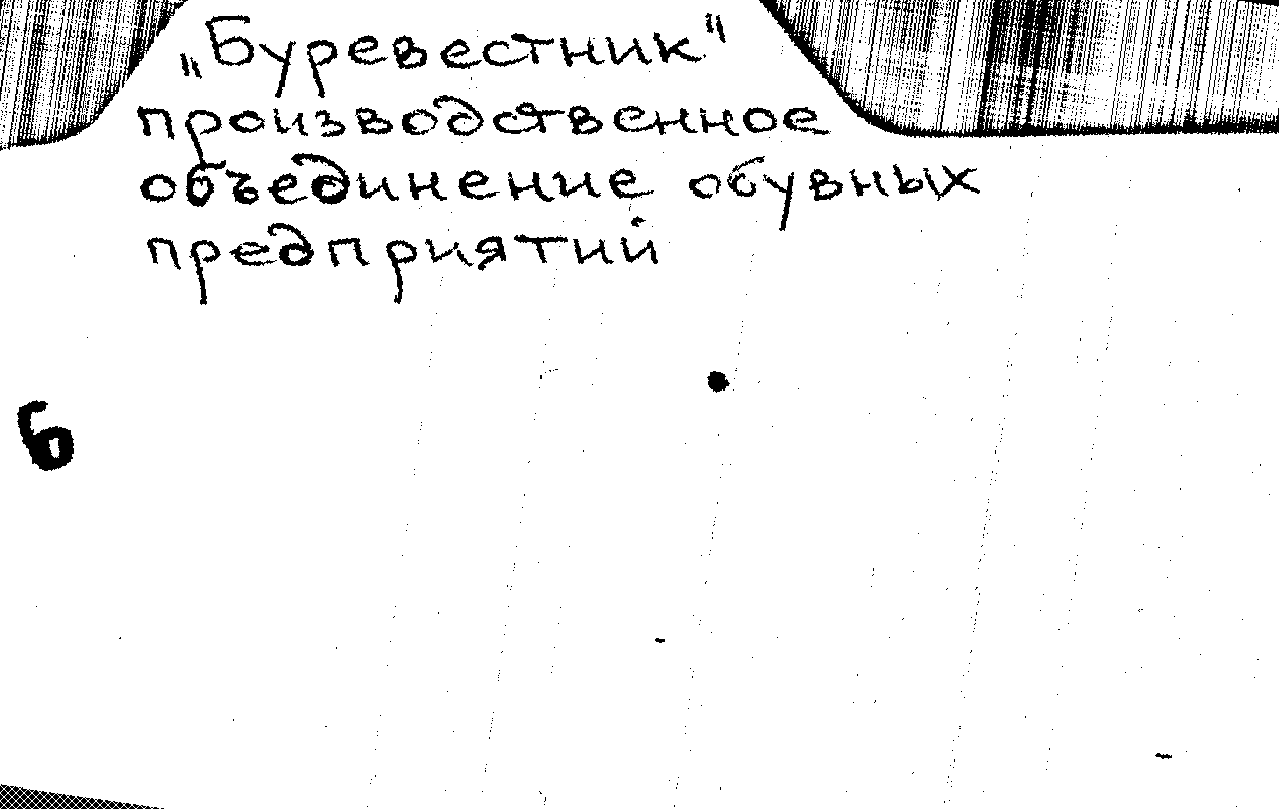 „Буревестник"
производственное
объединение обувных
предприятий
б